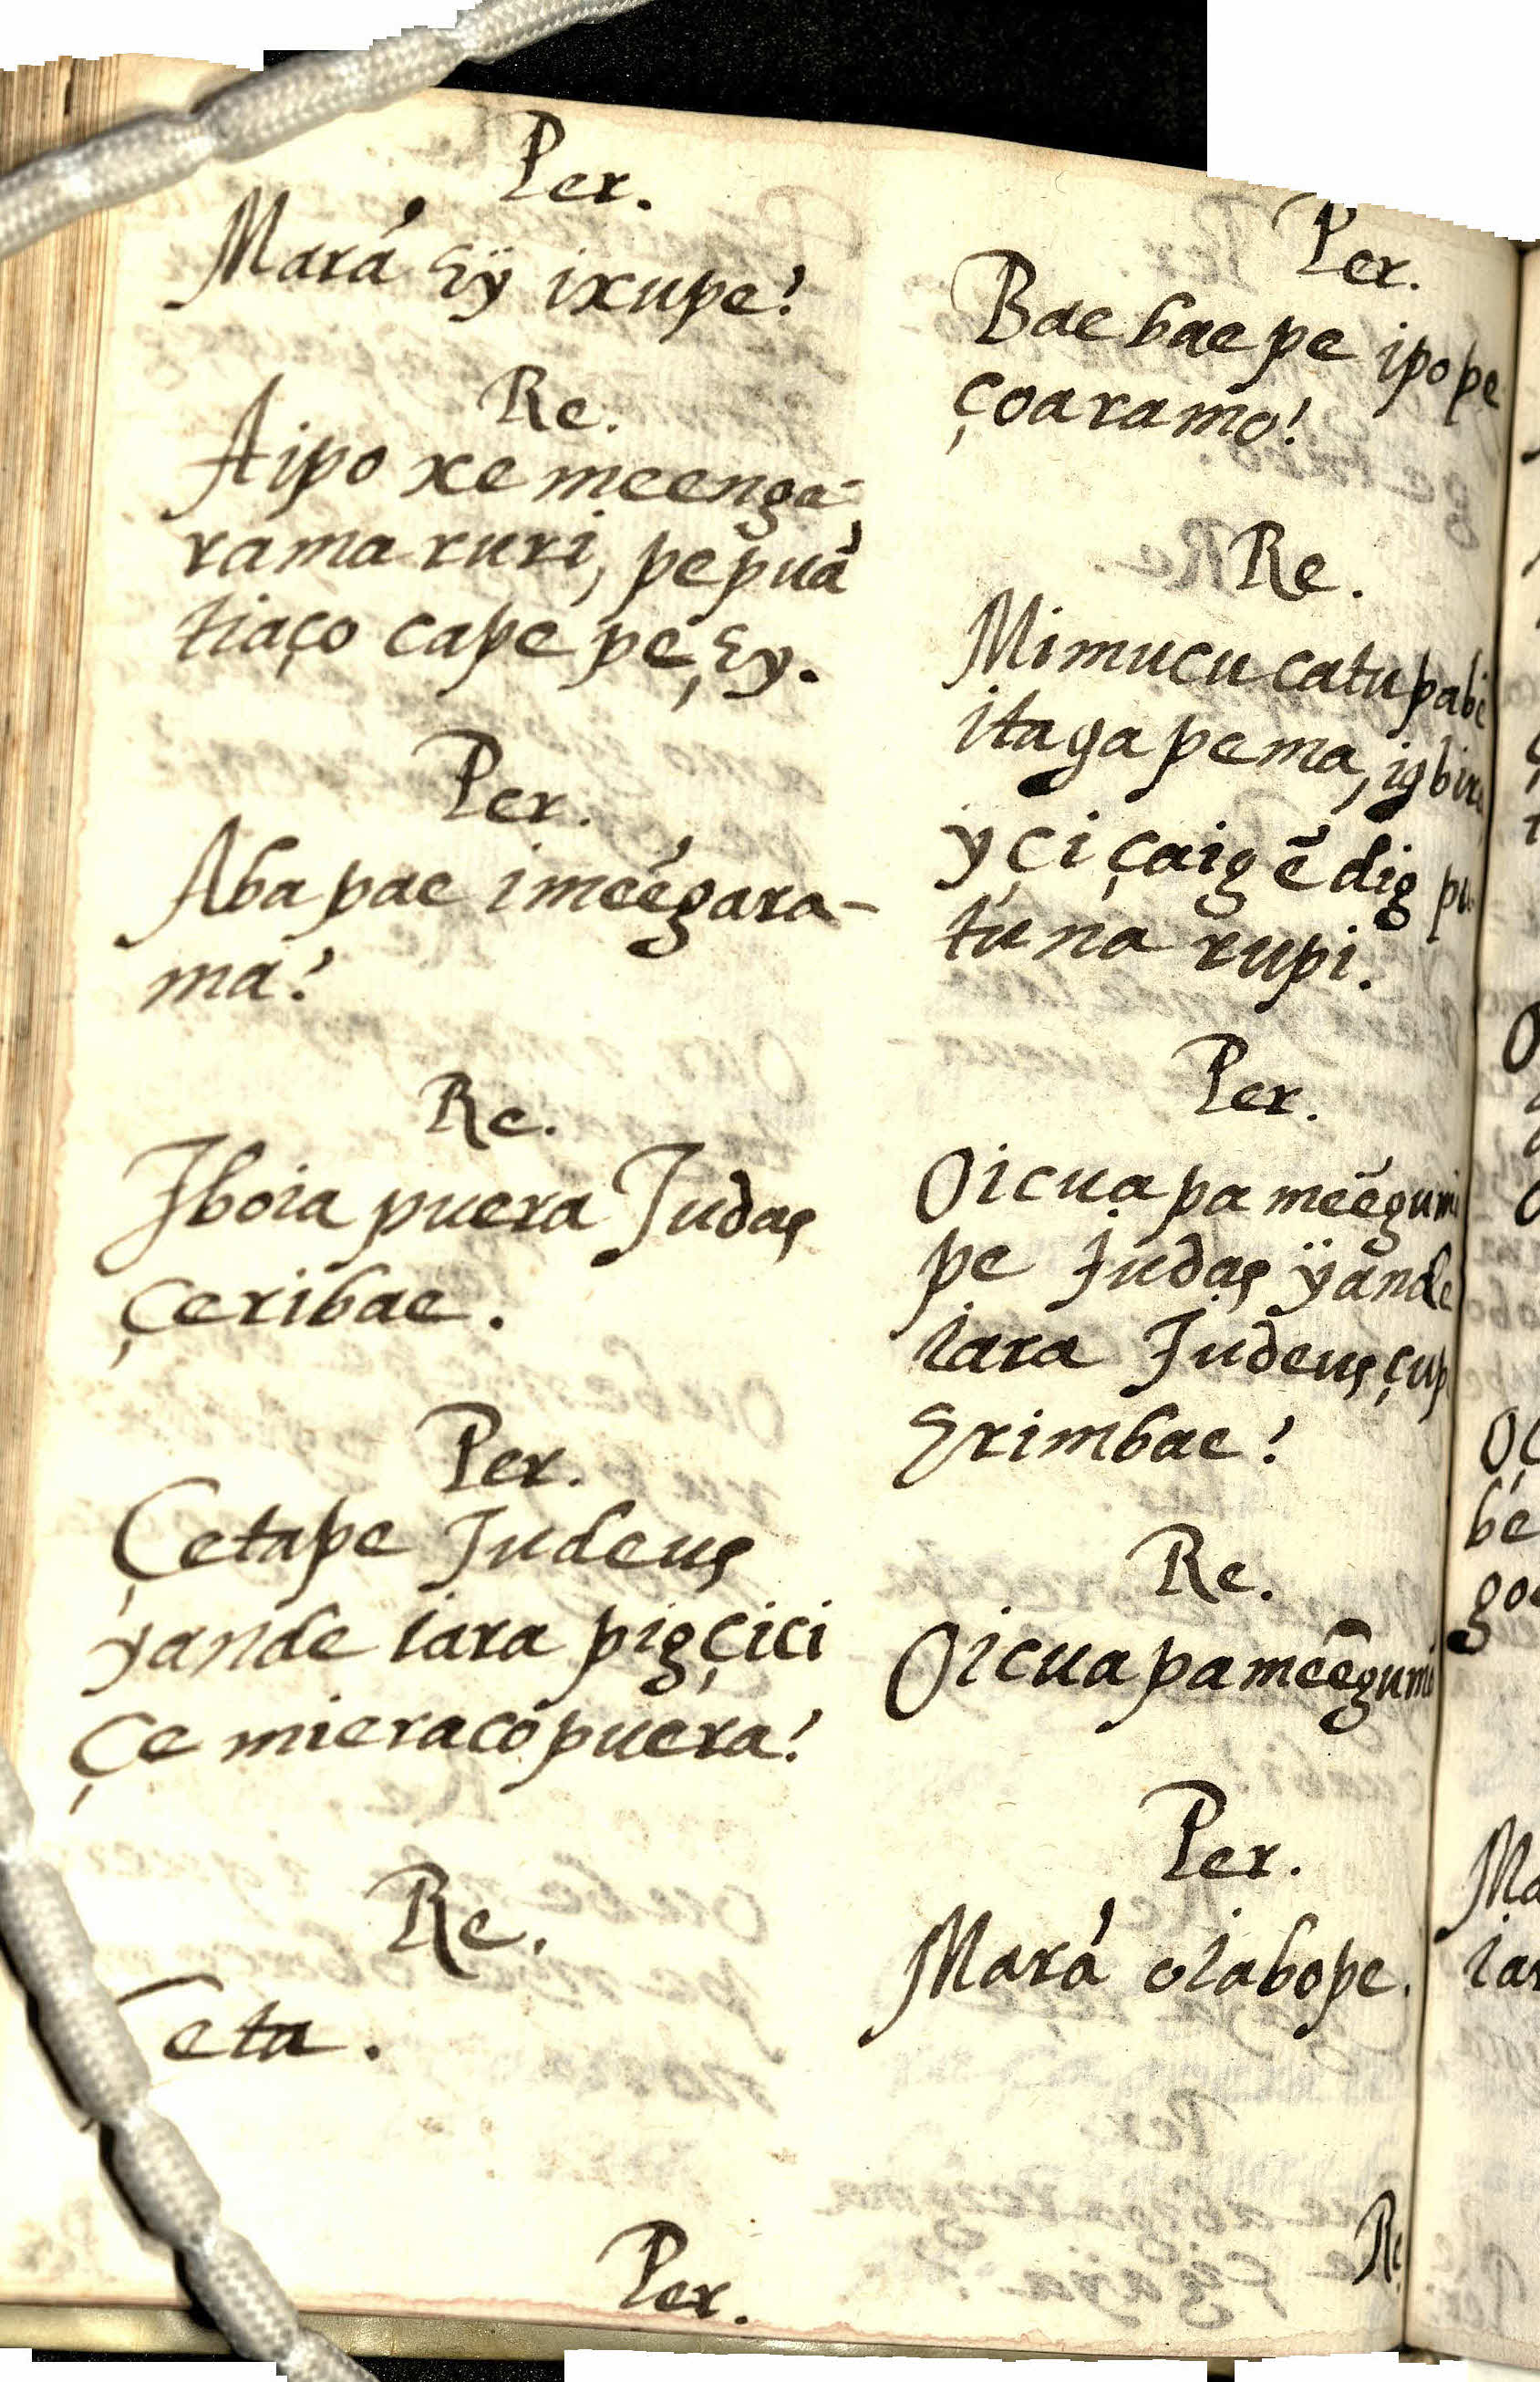 Per.
Mará Eÿ ixupe?
Re.
Aipo xe meenga-
rama ruri, pepuá
tiaço cape pe, Ey.
Per.
Aba pae imeégara-
ma?
Re.
Iboia puera Judas
çeribae.
Per.
Çetape Judeus
yande iara pigçici
çe mieracó puera?
Re.
eta.
Per.
Per.
Bae bae pe ipope
çoaramo?
Re.
Mimucu catu
itaga pema,
yçi çaigẽ dig
túna rupi.
Per.
Oicua pa
pe Judas ÿande
iara Judeus
Erimbae?
Re.
Oicuapa
Per.
Mará oiabope.
Re